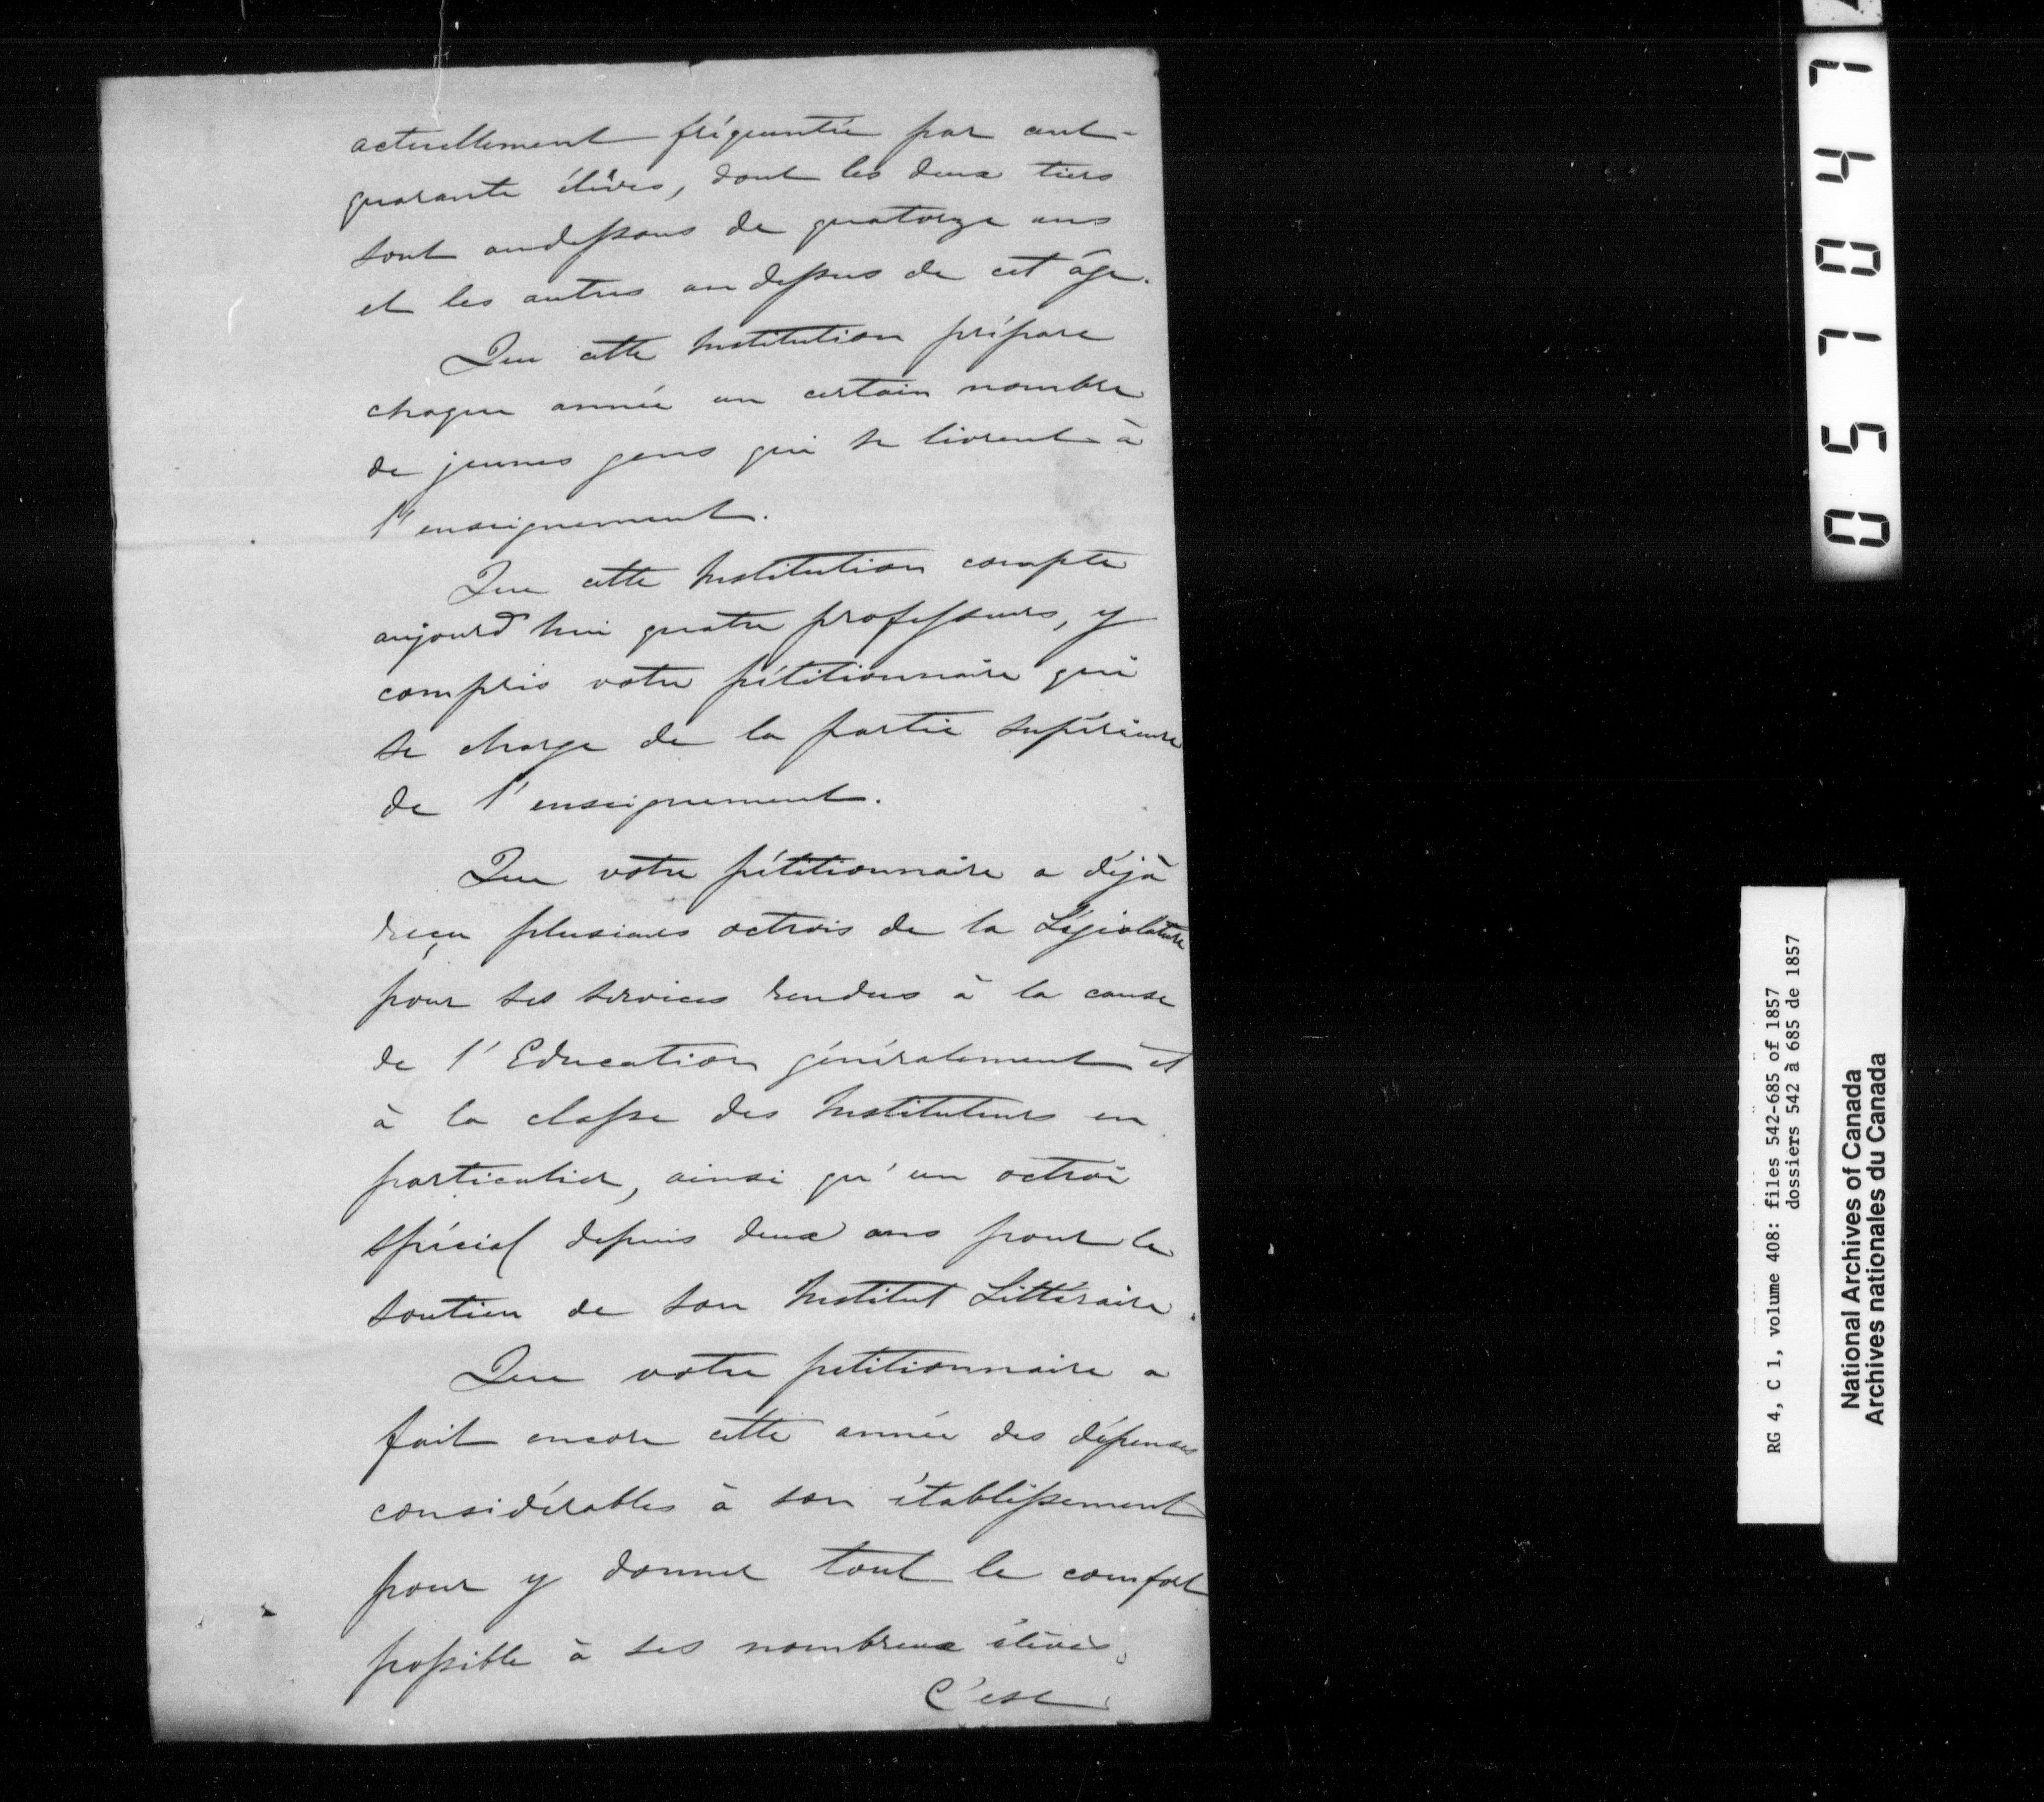 actuellement fréquentée par cent-
quarante élèves, dont les deux tiers
sont audessous de quatorze ans
et les autres au dessus de cet âge.
Que cette Institution prépare
chaque année un certain nombre
de jeunes gens qui se livrent à
l'enseignement.
Que cette Institution compte
aujourd'hui quatre professeurs, y
compris votre pétitionnaire qui
se charge de la partie supérieure
de l'enseignement.
Que votre pétitionnaire a déjà
reçu plusieurs octrois de la Législature
pour ses services rendus à la cause
de l'Education généralement et
à la classe des Instituteurs en
particulier, ainsi qu'un octroi
spécial depuis deux ans pour le
soutien de son Institut Littéraire.
Que votre petitionnaire a
fait encore cette année des dépenses
considérables à son établissement
pour y donner tout le comfort
possible à ses nombreux élèves.
C'est
057047
RG 4, C 1, volume 408: files 542-685 of 1857
dossiers 542 à 685 de 1857
National Archives of Canada
Archives nationales du Canada